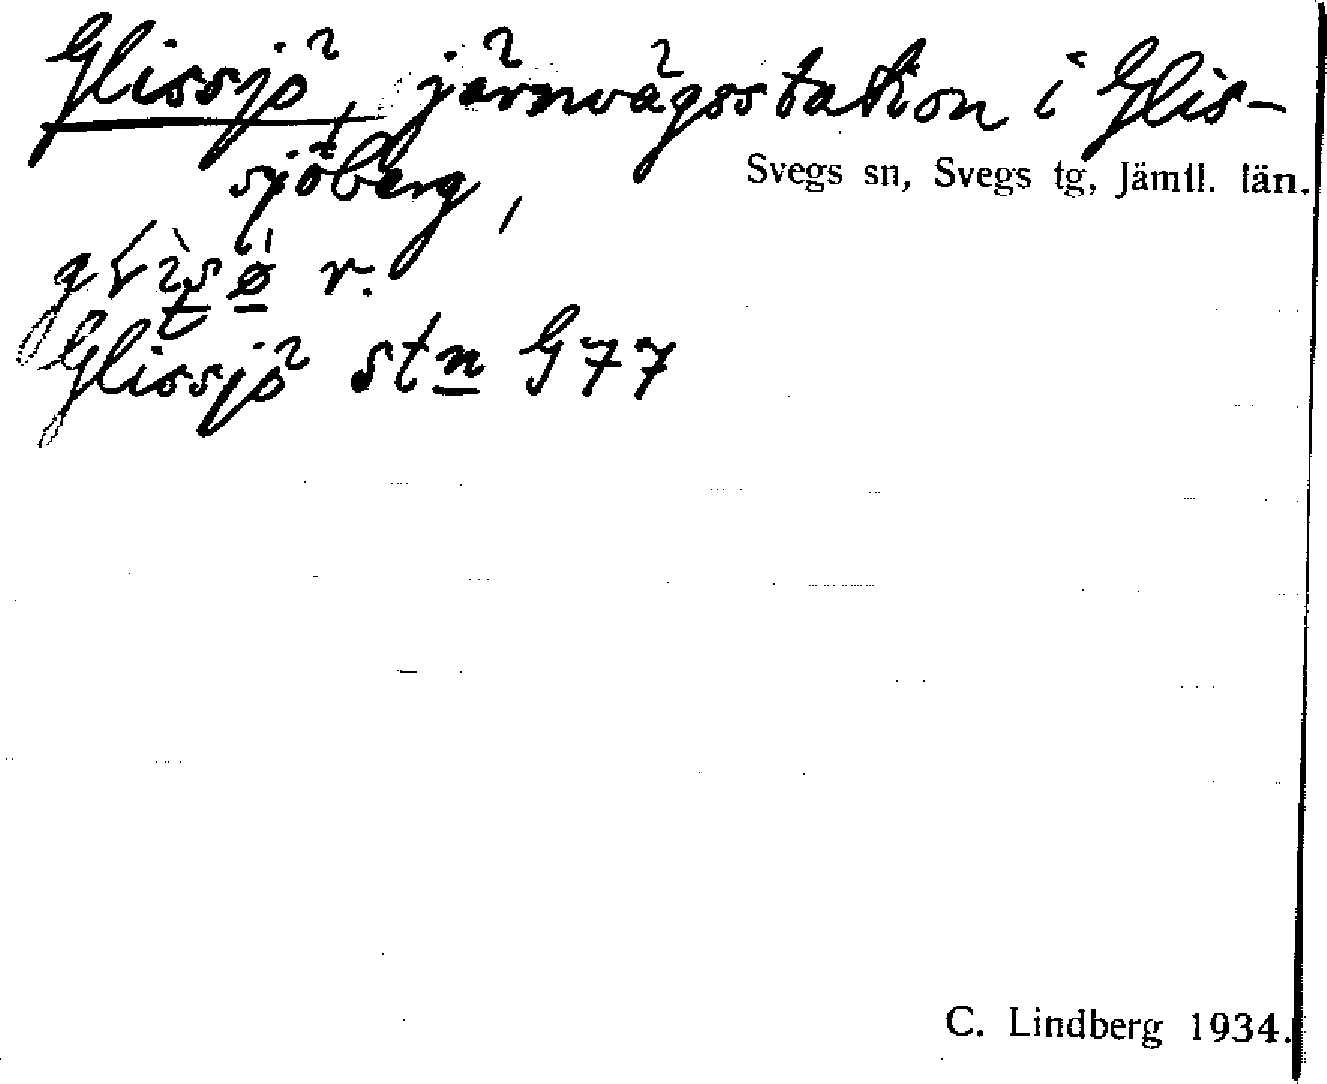 Glissjö, järnvägsstation i Glis-
sjöberg,
Svegs sn, Svegs tg, Jämtl. län.
r.
Glissjö stn G 77
C. Lindberg 1934.